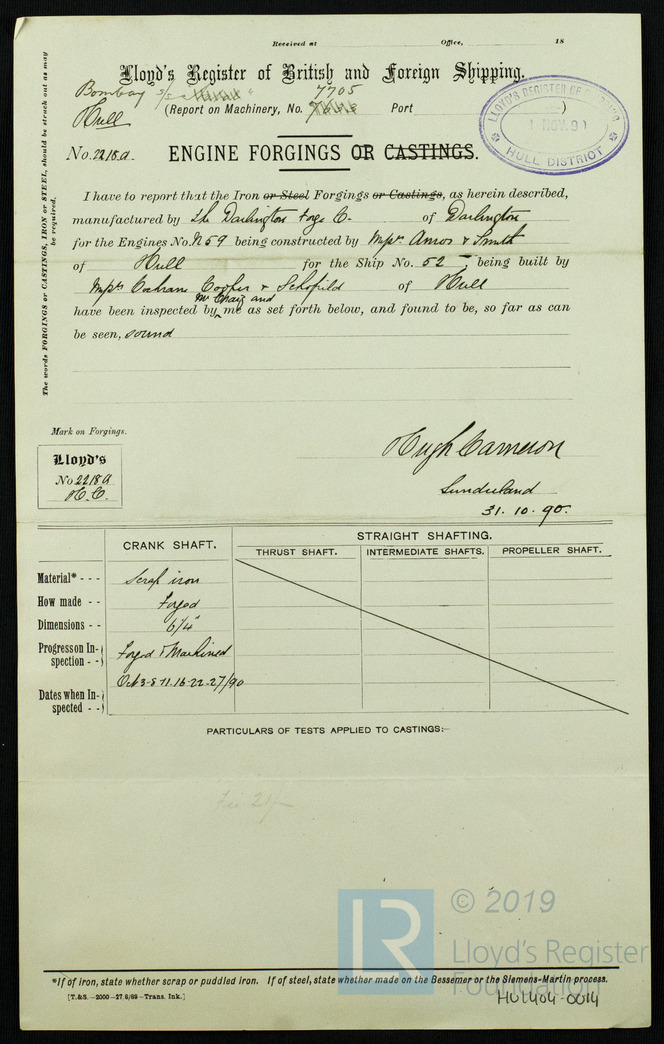 Received at Office, 18
Lloyd's Register of British and Foreign Shipping.
Bombay s/s 7705
Hull (Report on Machinery, No. Port )
LLOYD'S REGISTER OF SHIPPING
1 NOV. 90
HULL DISTRICT
No. 2218a. ENGINE FORGINGS OR CASTINGS.
The words FORGINGS or CASTINGS, IRON or STEEL, should be struck out as may be required.
I have to report that the Iron or Steel Forgings or Castings, as herein described,
manufactured by The Darlington Forge Co. of Darlington
for the Engines No. N59 being constructed by Messrs. Amos & Smith
of Hull for the Ship No. 52, being built by
Messrs Cochran Cooper & Schofield of Hull
Mr Craig and
have been inspected by me as set forth below, and found to be, so far as can
be seen, sound
Mark on Forgings.
Lloyd's
No 2218a
H.C.
Hugh Cameron
Sunderland
31. 10. 90.
CRANK SHAFT. STRAIGHT SHAFTING.
THRUST SHAFT. INTERMEDIATE SHAFTS. PROPELLER SHAFT.
Material* - - - Scrap iron
How made - - Forged
Dimensions - - 6 1/4"
Progress on Inspection - - Forged & Machined
Oct 3-8-11-16-22-27/90
Dates when Inspected - -
PARTICULARS OF TESTS APPLIED TO CASTINGS:—
Fee 21/-
© 2019
LR
Lloyd's Register
Foundation
*If of iron, state whether scrap or puddled iron. If of steel, state whether made on the Bessemer or the Siemens-Martin process.
[T.&S.—2000—27/6/89—Trans. Ink.]
HUL404-0014